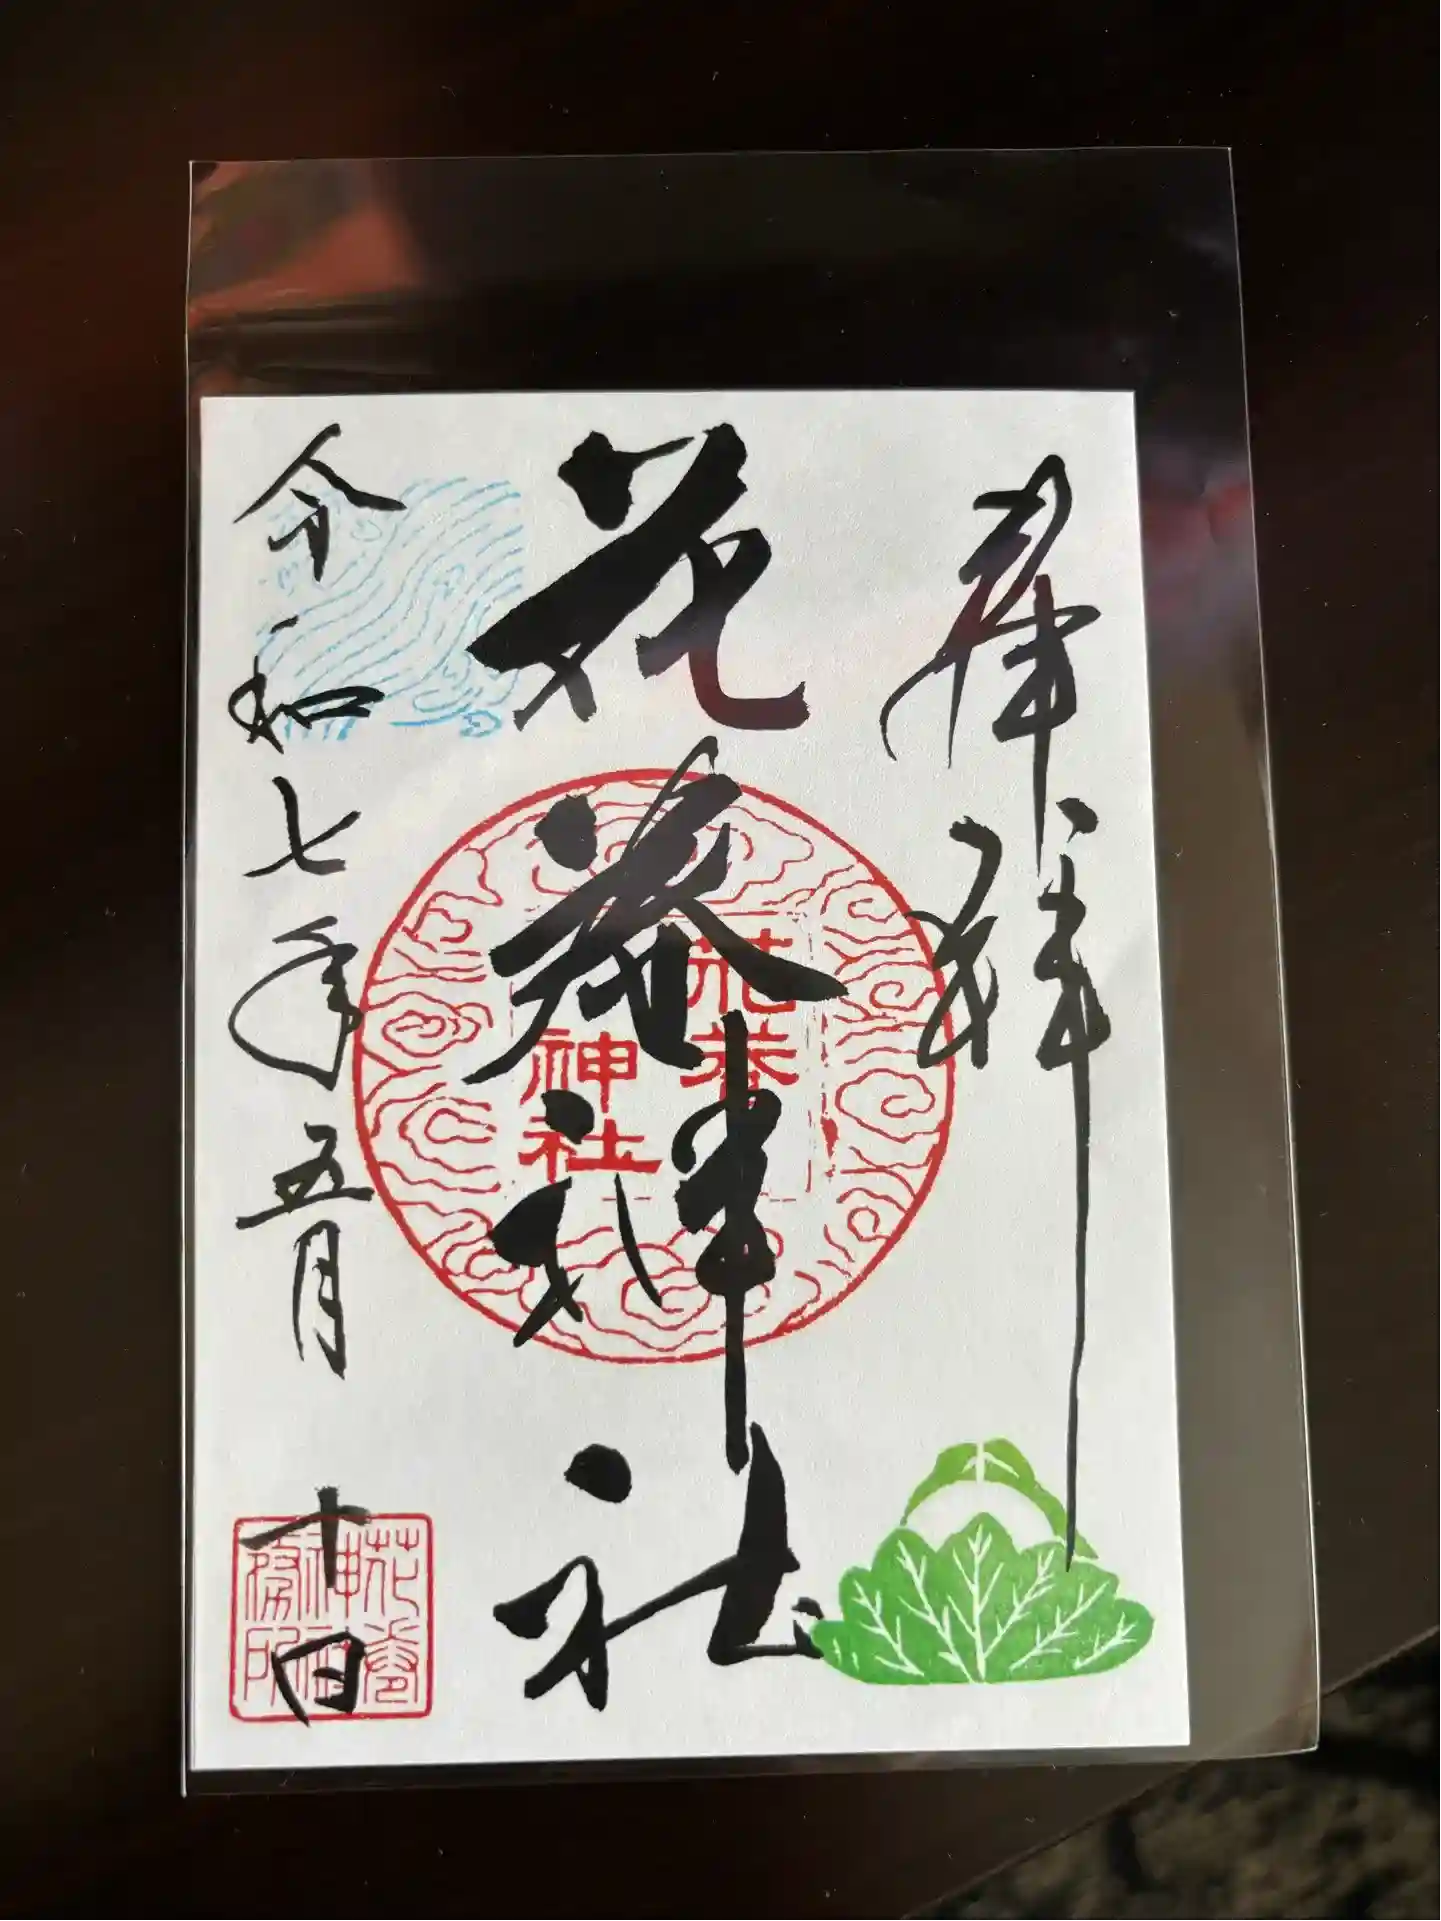 奉拝
花巻神社
花巻
神社
令和七年五月十日
花巻
神社
務所